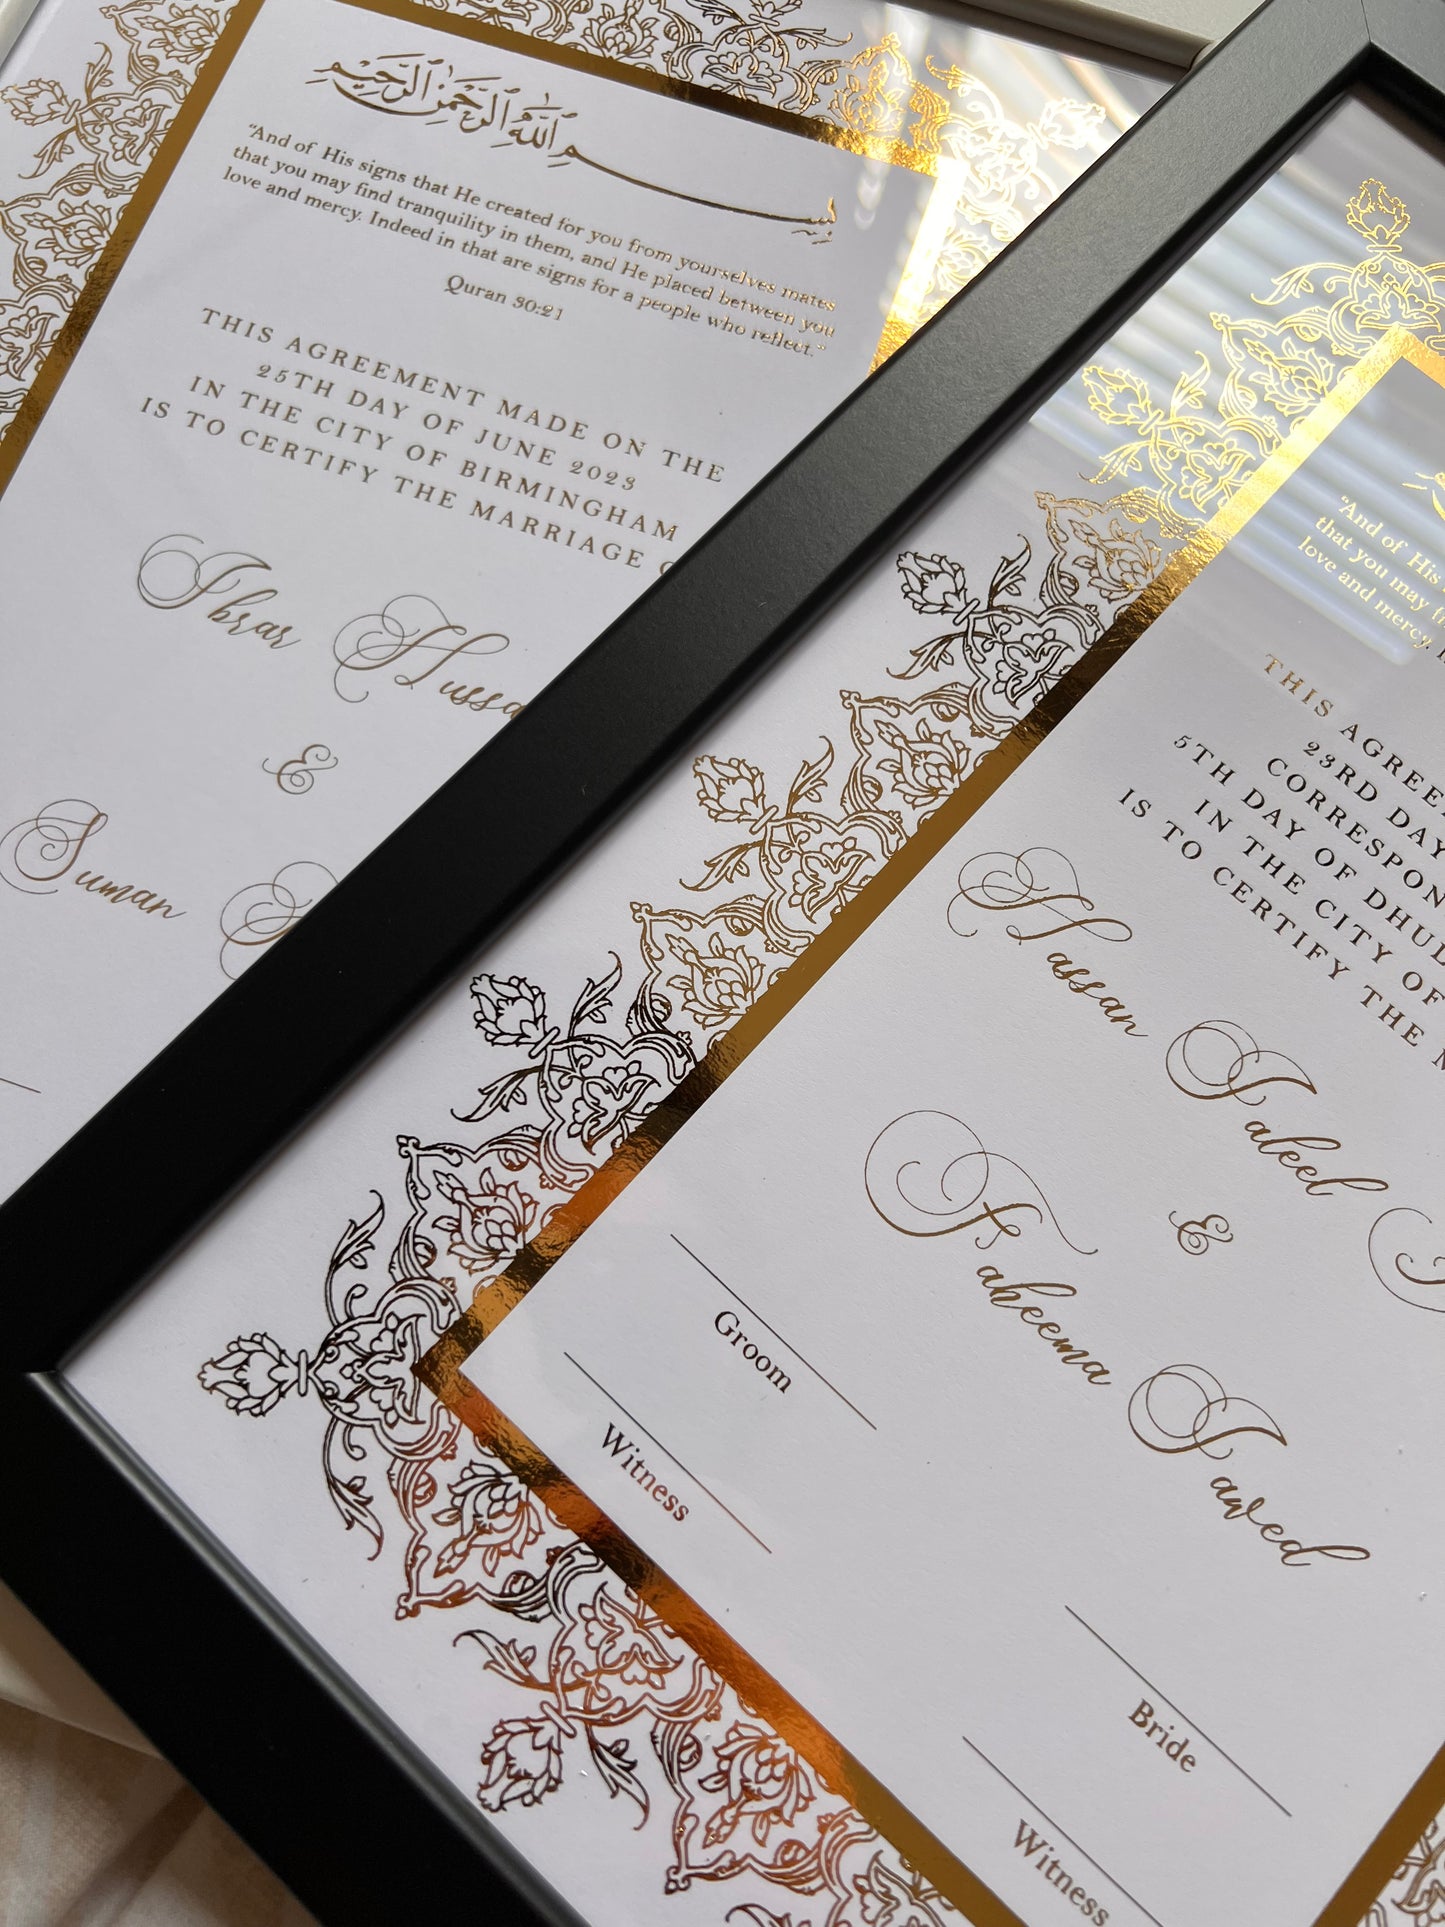 بسم الله الرحمن الرحيم
"And of His signs that He created for you from yourselves mates
that you may find tranquility in them, and He placed between you
love and mercy. Indeed in that are signs for a people who reflect."
Quran 30:21
THIS AGREEMENT MADE ON THE
25TH DAY OF JUNE 2023
IN THE CITY OF BIRMINGHAM
IS TO CERTIFY THE MARRIAGE
Ibrar
&
Suman
"And of His
that you may
love and mercy.
THIS
23RD DAY
5TH DAY OF
IN THE CITY OF
IS TO CERTIFY THE
Hassan
&
Faheema Jawed
Groom
Witness
Bride
Witness